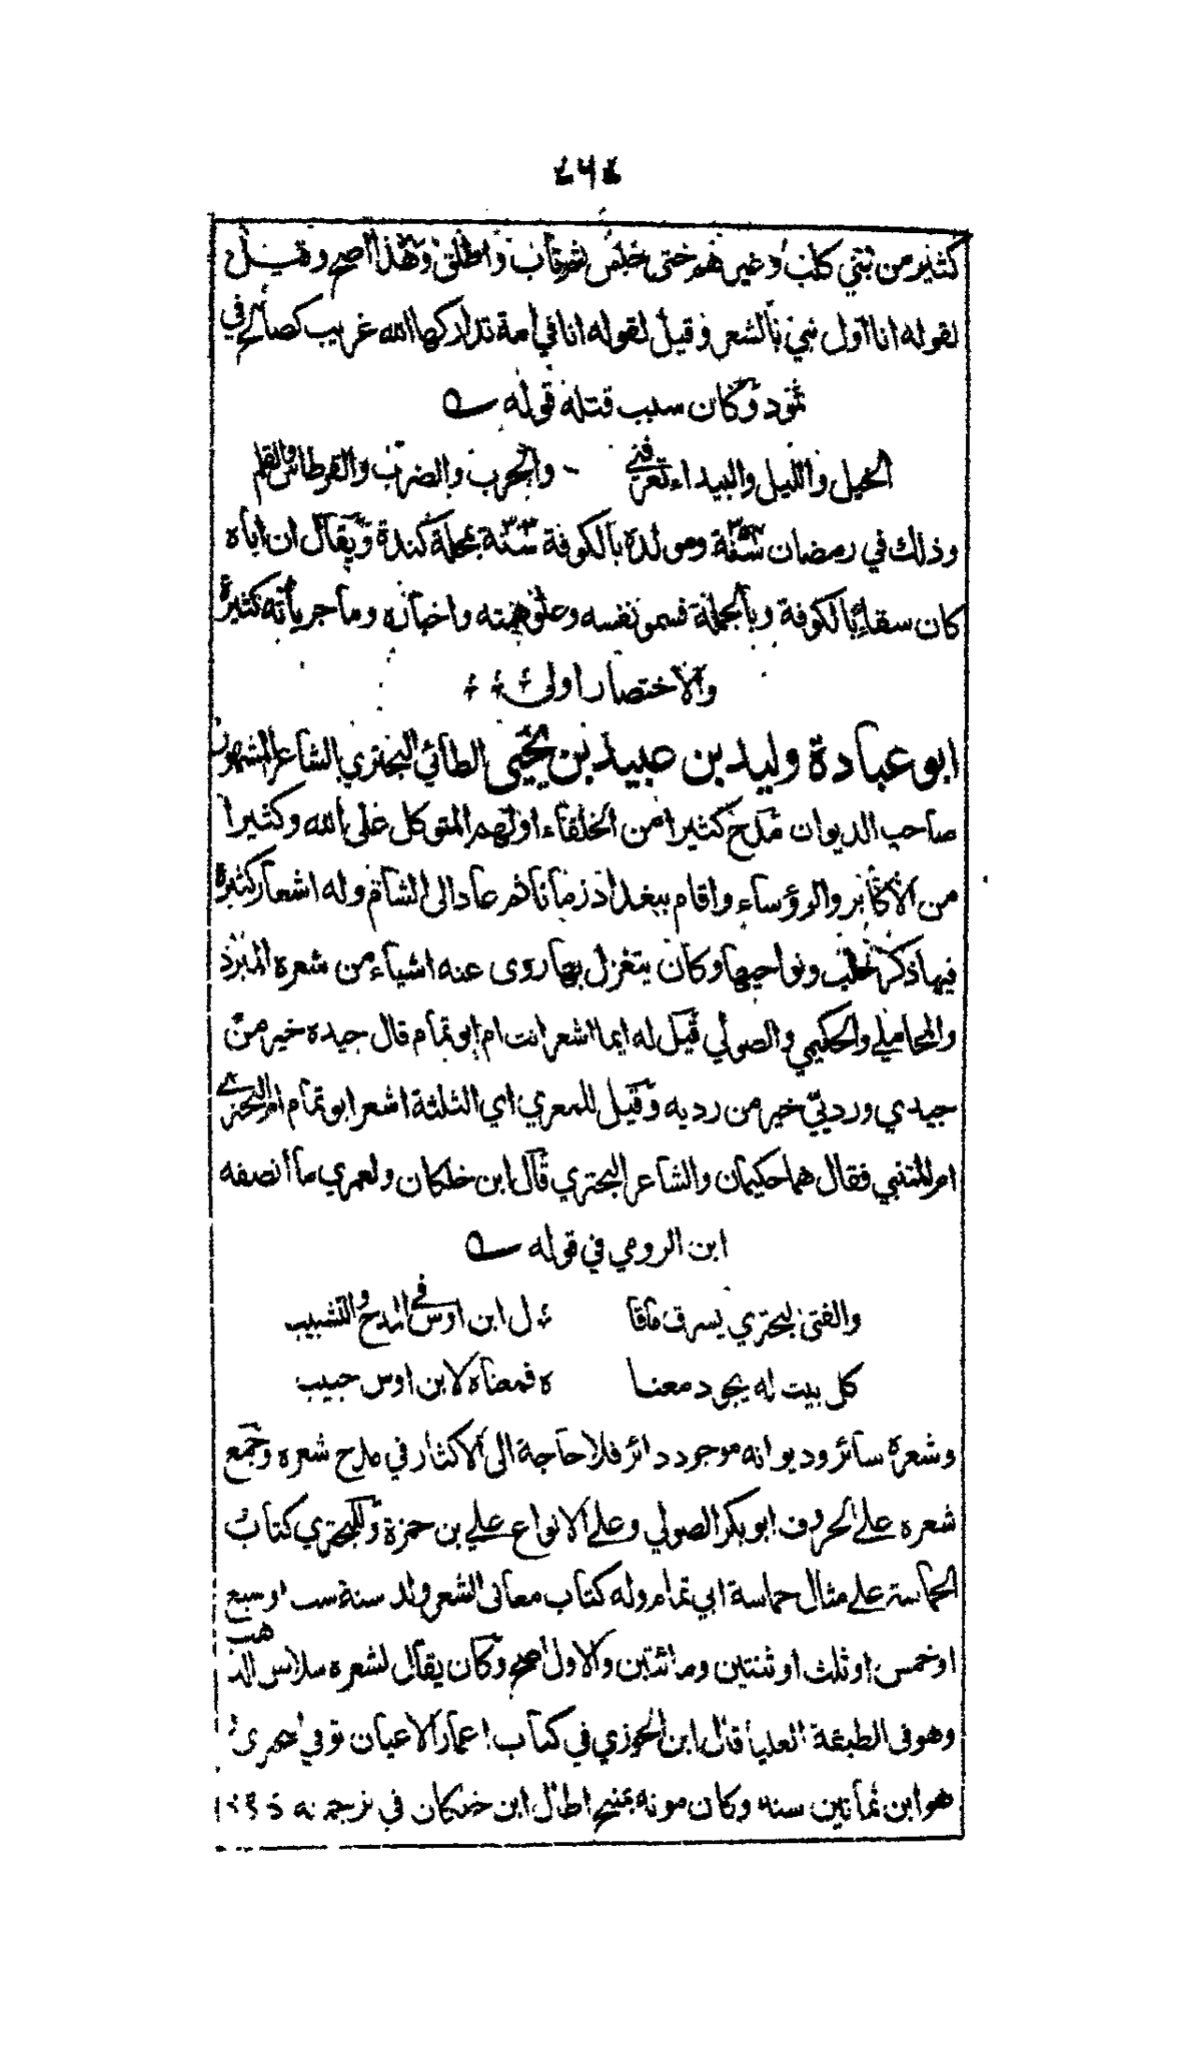 كثير من بني كلب وغيرهم حتى حبس ثم تاب واطلق وهذا اصح وقيل
لقوله انا اول نبي بالشعر وقيل لقوله انا في امة تداركها الله غريب كصالح في
ثمود وكان سبب قتله قوله
الخيل والليل والبيداء تعرفني والحرب والضرب والقرطاس والقلم
وذلك في رمضان سنة ومولده بالكوفة سنة بمحلة كندة ويقال ان اباه
كان سقاء بالكوفة وبالجملة فسمو نفسه وعلو همته واخباره وما جرياته كثيرة
والاختصار اولى
ابو عبادة وليد بن عبيد بن يحيى الطائي البحتري الشاعر المشهور
صاحب الديوان مدح كثيرا من الخلفاء اولهم المتوكل على الله وكثيرا
من الاكابر والرؤساء واقام ببغداد زمانا ثم عاد الى الشام وله اشعار كثيرة
فيها ذكر حلب ونواحيها وكان يتغزل بها روى عنه اشياء من شعره المبرد
والمحاملي والحكيمي والصولي قيل له ايما اشعر انت ام ابو تمام قال جيده خير من
جيدي ورديي خير من رديه وقيل للمعري اي الثلثة اشعر ابو تمام ام البحتري
ام المتنبي فقال هما حكيمان والشاعر البحتري قال ابن خلكان ولعمري ما انصفه
ابن الرومي في قوله
والفتى البحتري يسرق ما قا ل ابن اوس في المدح والتشبيب
كل بيت له يجود معنا ه فمعناه لابن اوس حبيب
وشعره سائر وديوانه موجود دائر فلا حاجة الى الاكثار في مدح شعره وجمع
شعره على الحروف ابو بكر الصولي وعلى الانواع علي بن حمزة وللبحتري كتاب
الحماسة على مثال حماسة ابي تمام وله كتاب معاني الشعر ولد سنة ست او سبع
او خمس او ثلث او ثنتين ومائتين والاول اصح وكان يقال لشعره سلاسل الذهب
وهو في الطبقة العليا قال ابن الجوزي في كتاب اعمار الاعيان توفي البحتري
هو ابن ثمانين سنة وكان موته بمنبج اطال ابن خلكان في ترجمته